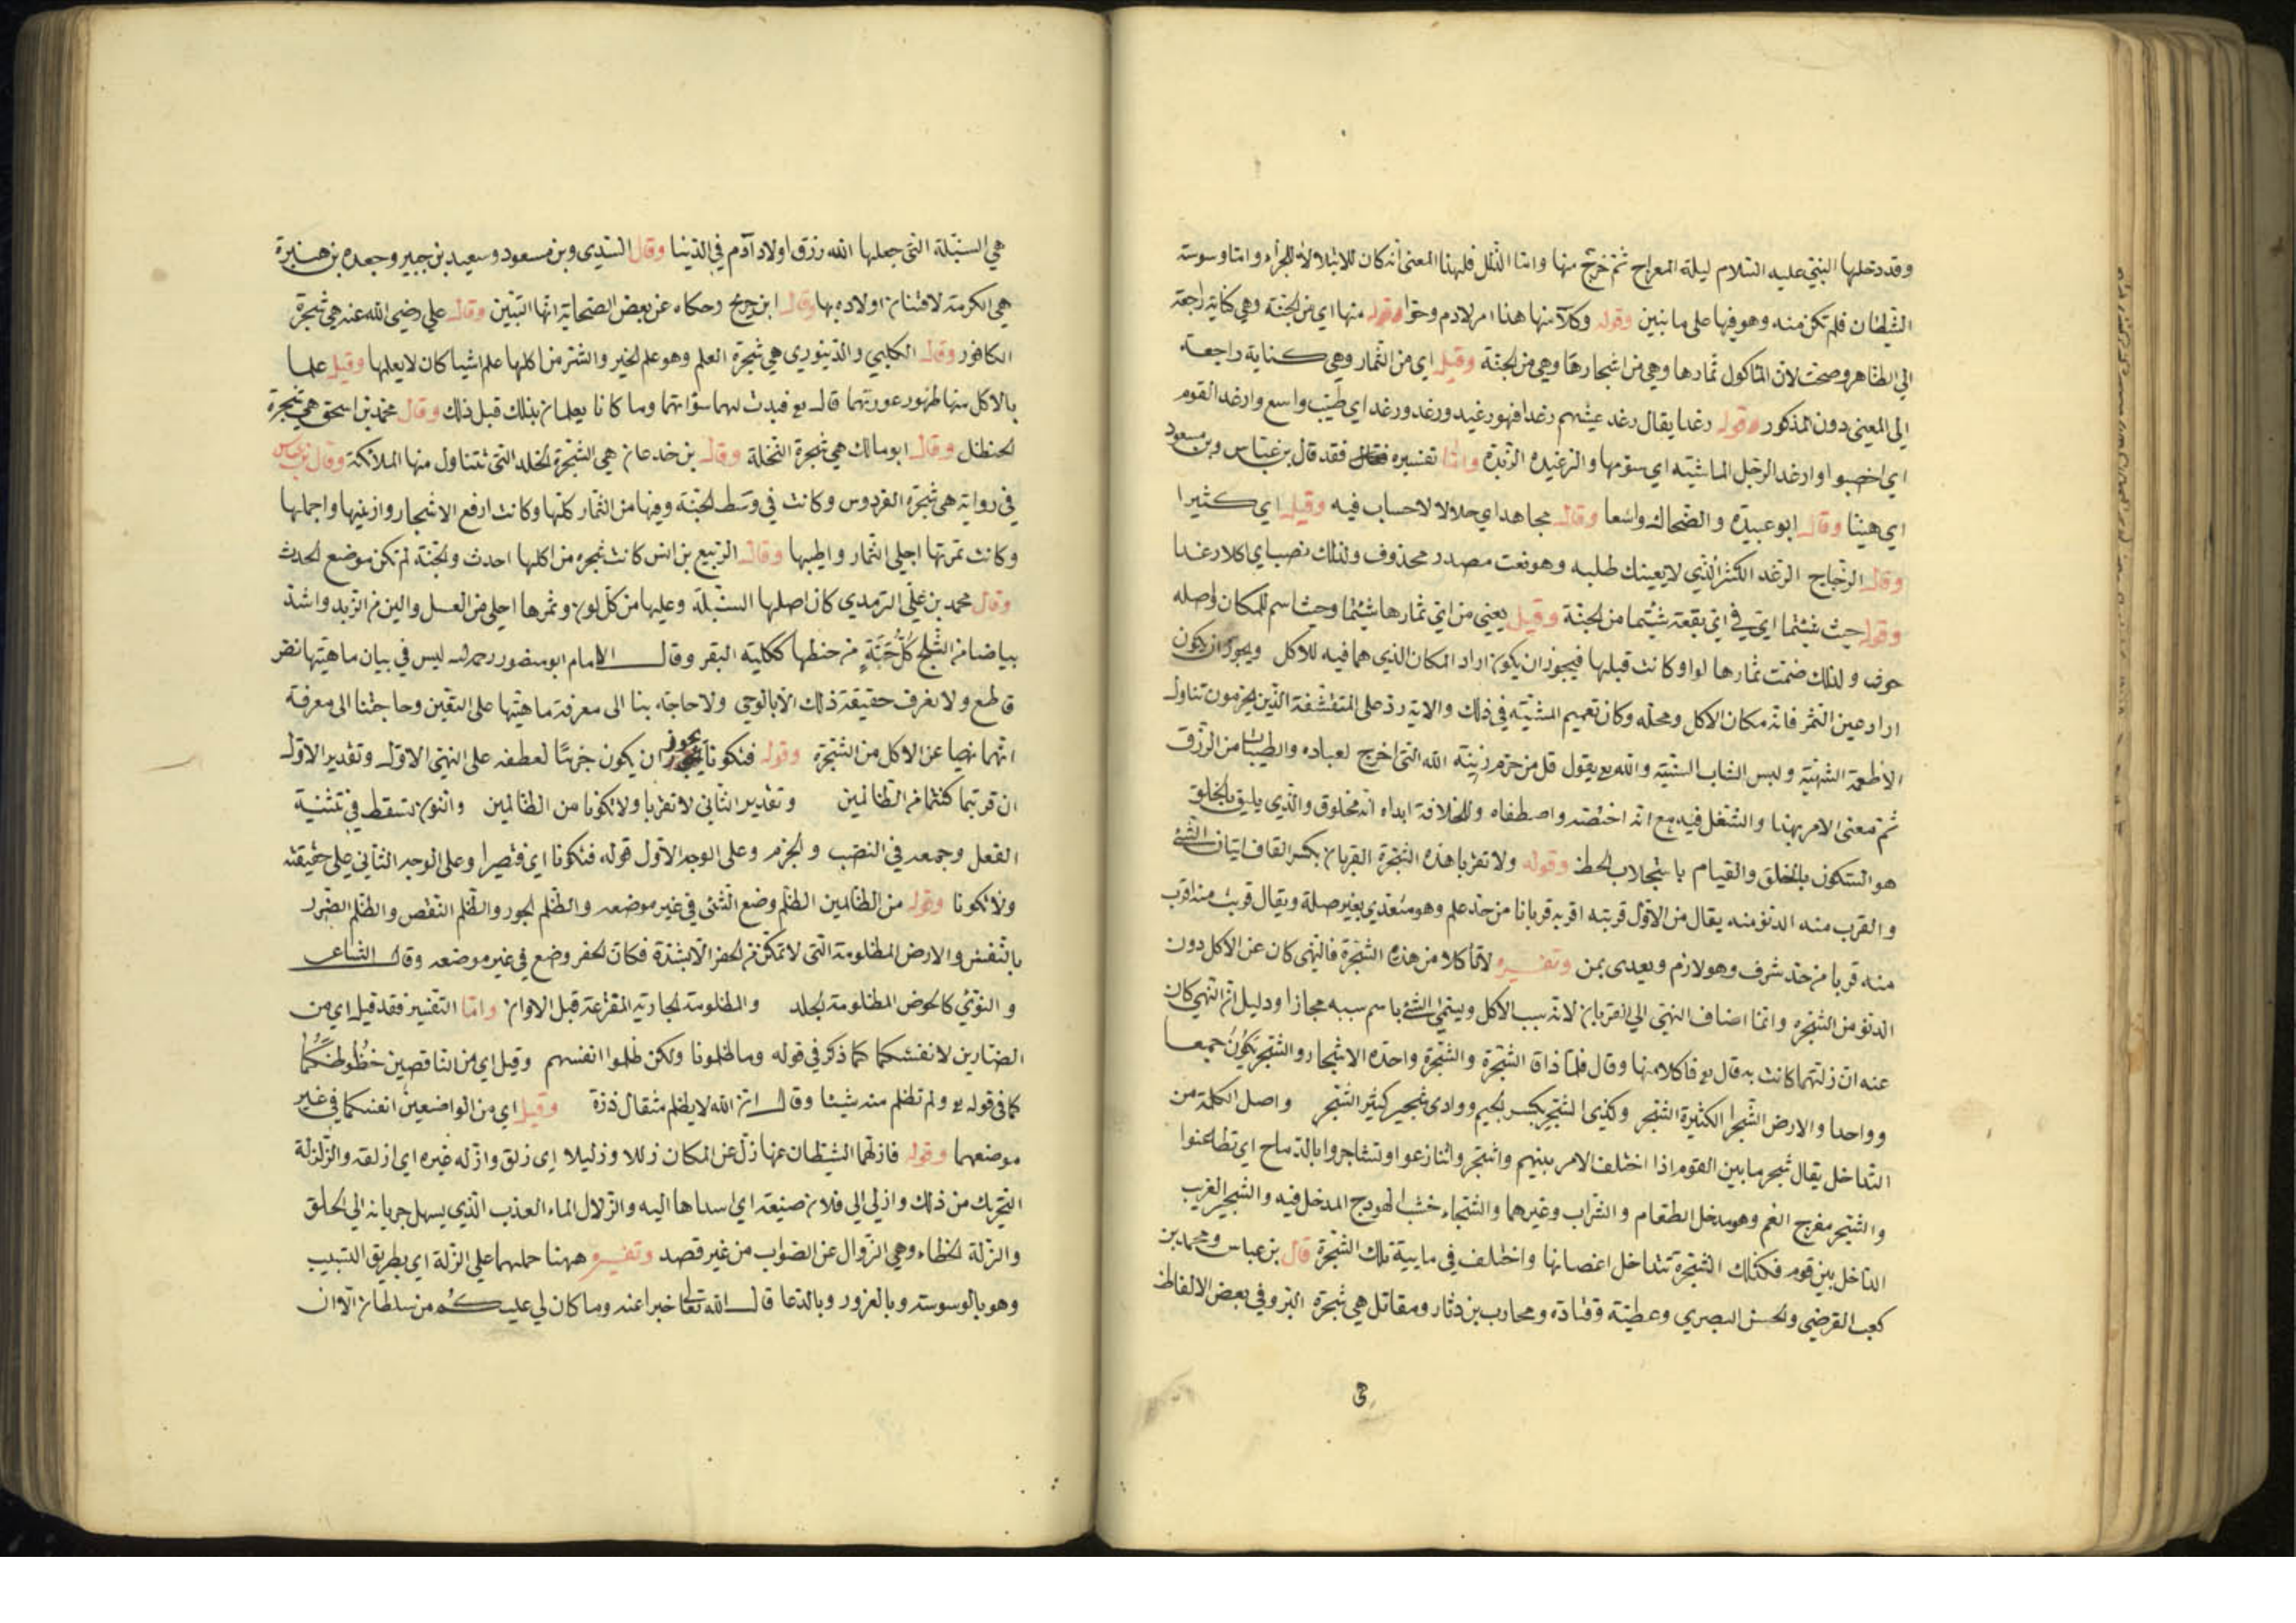 وقد دخلها النبي عليه السلام ليلة المعراج ثم خرج منها واما الذلل فلهذا المعنى انه كان للابتلاء لا للجزاء واما وسوسة
الشيطان فلم تكن منه وهو فيها على ما نبين وقوله وكلا منها هذا امر لادم وحوا وقوله منها اي من الجنة وهي كناية راجعة
الى الظاهر وصحت لان المأكول ثمارها وهي من اشجارها وهي من الجنة وقيل اي من الثمار وهي كناية راجعة
الى المعنى دون المذكور وقوله رغدا يقال رغد عيشهم رغدا فهو رغيد ورغد ورغد اي طيب واسع وارغد القوم
اي اخصبوا وارغد الرجل الماشيته اي سومها والرغيده الزبدة واما تفسيره فقد قال بن عباس وبن مسعود
اي هينا وقال ابو عبيدة والضحاك واسعا وقال مجاهد اي حلالا لا حساب فيه وقيل اي كثيرا
وقال الزجاج الرغد الكثير الذي لا يعينك طلبه وهو نعت مصدر محذوف ولذلك نصب اي اكلا رغدا
وقوله حيث شئتما اي في اي بقعة شئتما من الجنة وقيل يعني من اي ثمارها شئتما وحيث اسم للمكان واصله
حوث ولذلك ضمت ثمارها لواو كانت قبلها فيجوز ان يكون اراد المكان الذي هما فيه للاكل ويجوز ان يكون
اراد عين الثمر فانه مكان الاكل ومحله وكان تعميم المشيته في ذلك والاية رد على المتقشفة الذين يحرمون تناول
الاطعمة الشهية ولبس الثياب السنية والله يع يقول قل من حرم زينة الله التي اخرج لعباده والطيبات من الرزق
ثم معنى الامر بهذا والشغل فيه مع انه اختصه واصطفاه وللخلافة ابداه انه مخلوق والذي يليق بالخلق
هو السكون بالخلق والقيام باستجلاب الحظ وقوله ولا تقربا هذه الشجرة القربان بكسر القاف اتيان الشئ
والقرب منه الدنو منه يقال من الاول قربته اقربه قربانا من حد علم وهو متعدي بغير صلة ويقال قربت منه اقرب
منه قربا من حد شرف وهو لازم ويعدى بمن وتفسيره لا تاكلا من هذه الشجرة فالنهي كان عن الاكل دون
الدنو من الشجره وانما اضاف النهي الى القربان لانه سبب الاكل ويسمى الشئ باسم سببه مجازا ودليل ان النهي كان
عنه ان زلتهما كانت به قال يع فاكلا منها وقال فلما ذاقا الشجرة والشجرة واحدة الاشجار والشجر يكون جمعا
وواحدا والارض الشجرا الكثيرة الشجر وكذى الشجر بكسر الجيم ووادى شجير كثير الشجر واصل الكلمة من
التداخل يقال شجر ما بين القوم اذا اختلف الامر بينهم واشتجر واتنازعوا وتشاجروا بالرماح اي تطاعنوا
والشجر مفرج الفم وهو مدخل الطعام والشراب وغيرهما والشجاء خشب الهودج المدخل فيه والشجير الغريب
الداخل بين قوم فكذلك الشجرة تتداخل اغصانها واختلف في مايية تلك الشجرة قال بن عباس ومحمد بن
كعب القرضي والحسن البصري وعطية وقتادة ومحارب بن دثار ومقاتل هي شجرة البر وفي بعض الالفاظ
هي السنبلة التي جعلها الله رزق اولاد آدم في الدنيا وقال السدي وبن مسعود وسعيد بن جبير وجعده بن هبيرة
هي الكرمة لافتنان اولاده بها وقال ابن جريج وحكاه عن بعض الصحابة انها التين وقال علي رضي الله عنه هي شجرة
الكافور وقال الكلبي والدينوري هي شجرة العلم وهو علم الخير والشر من اكلها علم اشيا كان لا يعلمها وقيل علما
بالاكل منها ظهور عورتهما قال يع فبدت لهما سوآتهما وما كانا يعلمان بذلك قبل ذلك وقال محمد بن اسحق هي شجرة
الحنظل وقال ابو مالك هي شجرة النخلة وقال بن خدعان هي الشجرة الخلد التي تتناول منها الملائكة وقال بن عباس
في رواية هي شجرة الفردوس وكانت في وسط الجنة وفيها من الثمار كلها وكانت ارفع الاشجار وازينها واجملها
وكانت ثمرتها اجلى الثمار واطيبها وقال الربيع بن انس كانت شجره من اكلها احدث والجنة لم تكن موضع الحدث
وقال محمد بن علي الترمدي كان اصلها السنبلة وعليها من كل لون وثمرها احلى من العسل والين من الزبد واشد
بياضا من الثلج كل حبة من حنطها ككلية البقر وقال الامام ابو منصور رحمه الله ليس في بيان ماهيتها نص
قاطع ولا نعرف حقيقة ذلك الا بالوحي ولا حاجة بنا الى معرفة ماهيتها على التعين وحاجتنا الى معرفة
انهما نهيا عن الاكل من الشجرة وقوله فتكونا يجوز ان يكون جزمًا لعطفه على النهي الاول وتقدير الاول
ان قربتما كنتما من الظالمين وتقدير الثاني لا تقربا ولا تكونا من الظالمين والنون تسقط في تثنية
الفعل وجمعه في النصب والجزم وعلى الوجه الاول قوله فتكونا اي فتصيرا وعلى الوجه الثاني على حقيقته
ولا تكونا وقوله من الظالمين الظلم وضع الشئ في غير موضعه والظلم الجور والظلم النقص والظلم الضرر
بالنفس والارض المظلومة التي لا تمكن من الحفر الا بشدة فكان الحفر وضع في غير موضعه وقال الشاعر
والنوئي كالحوض المظلومة الجلد والمظلومة الجارية المقترعة قبل الاوان واما التفسير فقد قيل اي من
الضارين لانفسكما كما ذكر في قوله وما ظلمونا ولكن ظلموا انفسهم وقيل اي من الناقصين حظوظكما
كما في قوله يع ولم تظلم منه شيئا وقال ان الله لا يظلم مثقال ذرة وقيل اي من الواضعين انفسكما في غير
موضعهما وقوله فازلهما الشيطان عنها زل عن المكان زللا وزليلا اي زلق وازله غيره اي ازلقه والزلزلة
التحريك من ذلك وازلي الى فلان صنيعة اي اسداها اليه والزلال الماء العذب الذي يسهل جريانه الى الحلق
والزلة الخطاء وهي الزوال عن الصواب من غير قصد وتفسيره ههنا حملهما على الزلة اي بطريق التسبيب
وهو بالوسوسة وبالغرور وبالدعا قال الله تعا خبرا عنه وما كان لي عليكم من سلطان الا ان